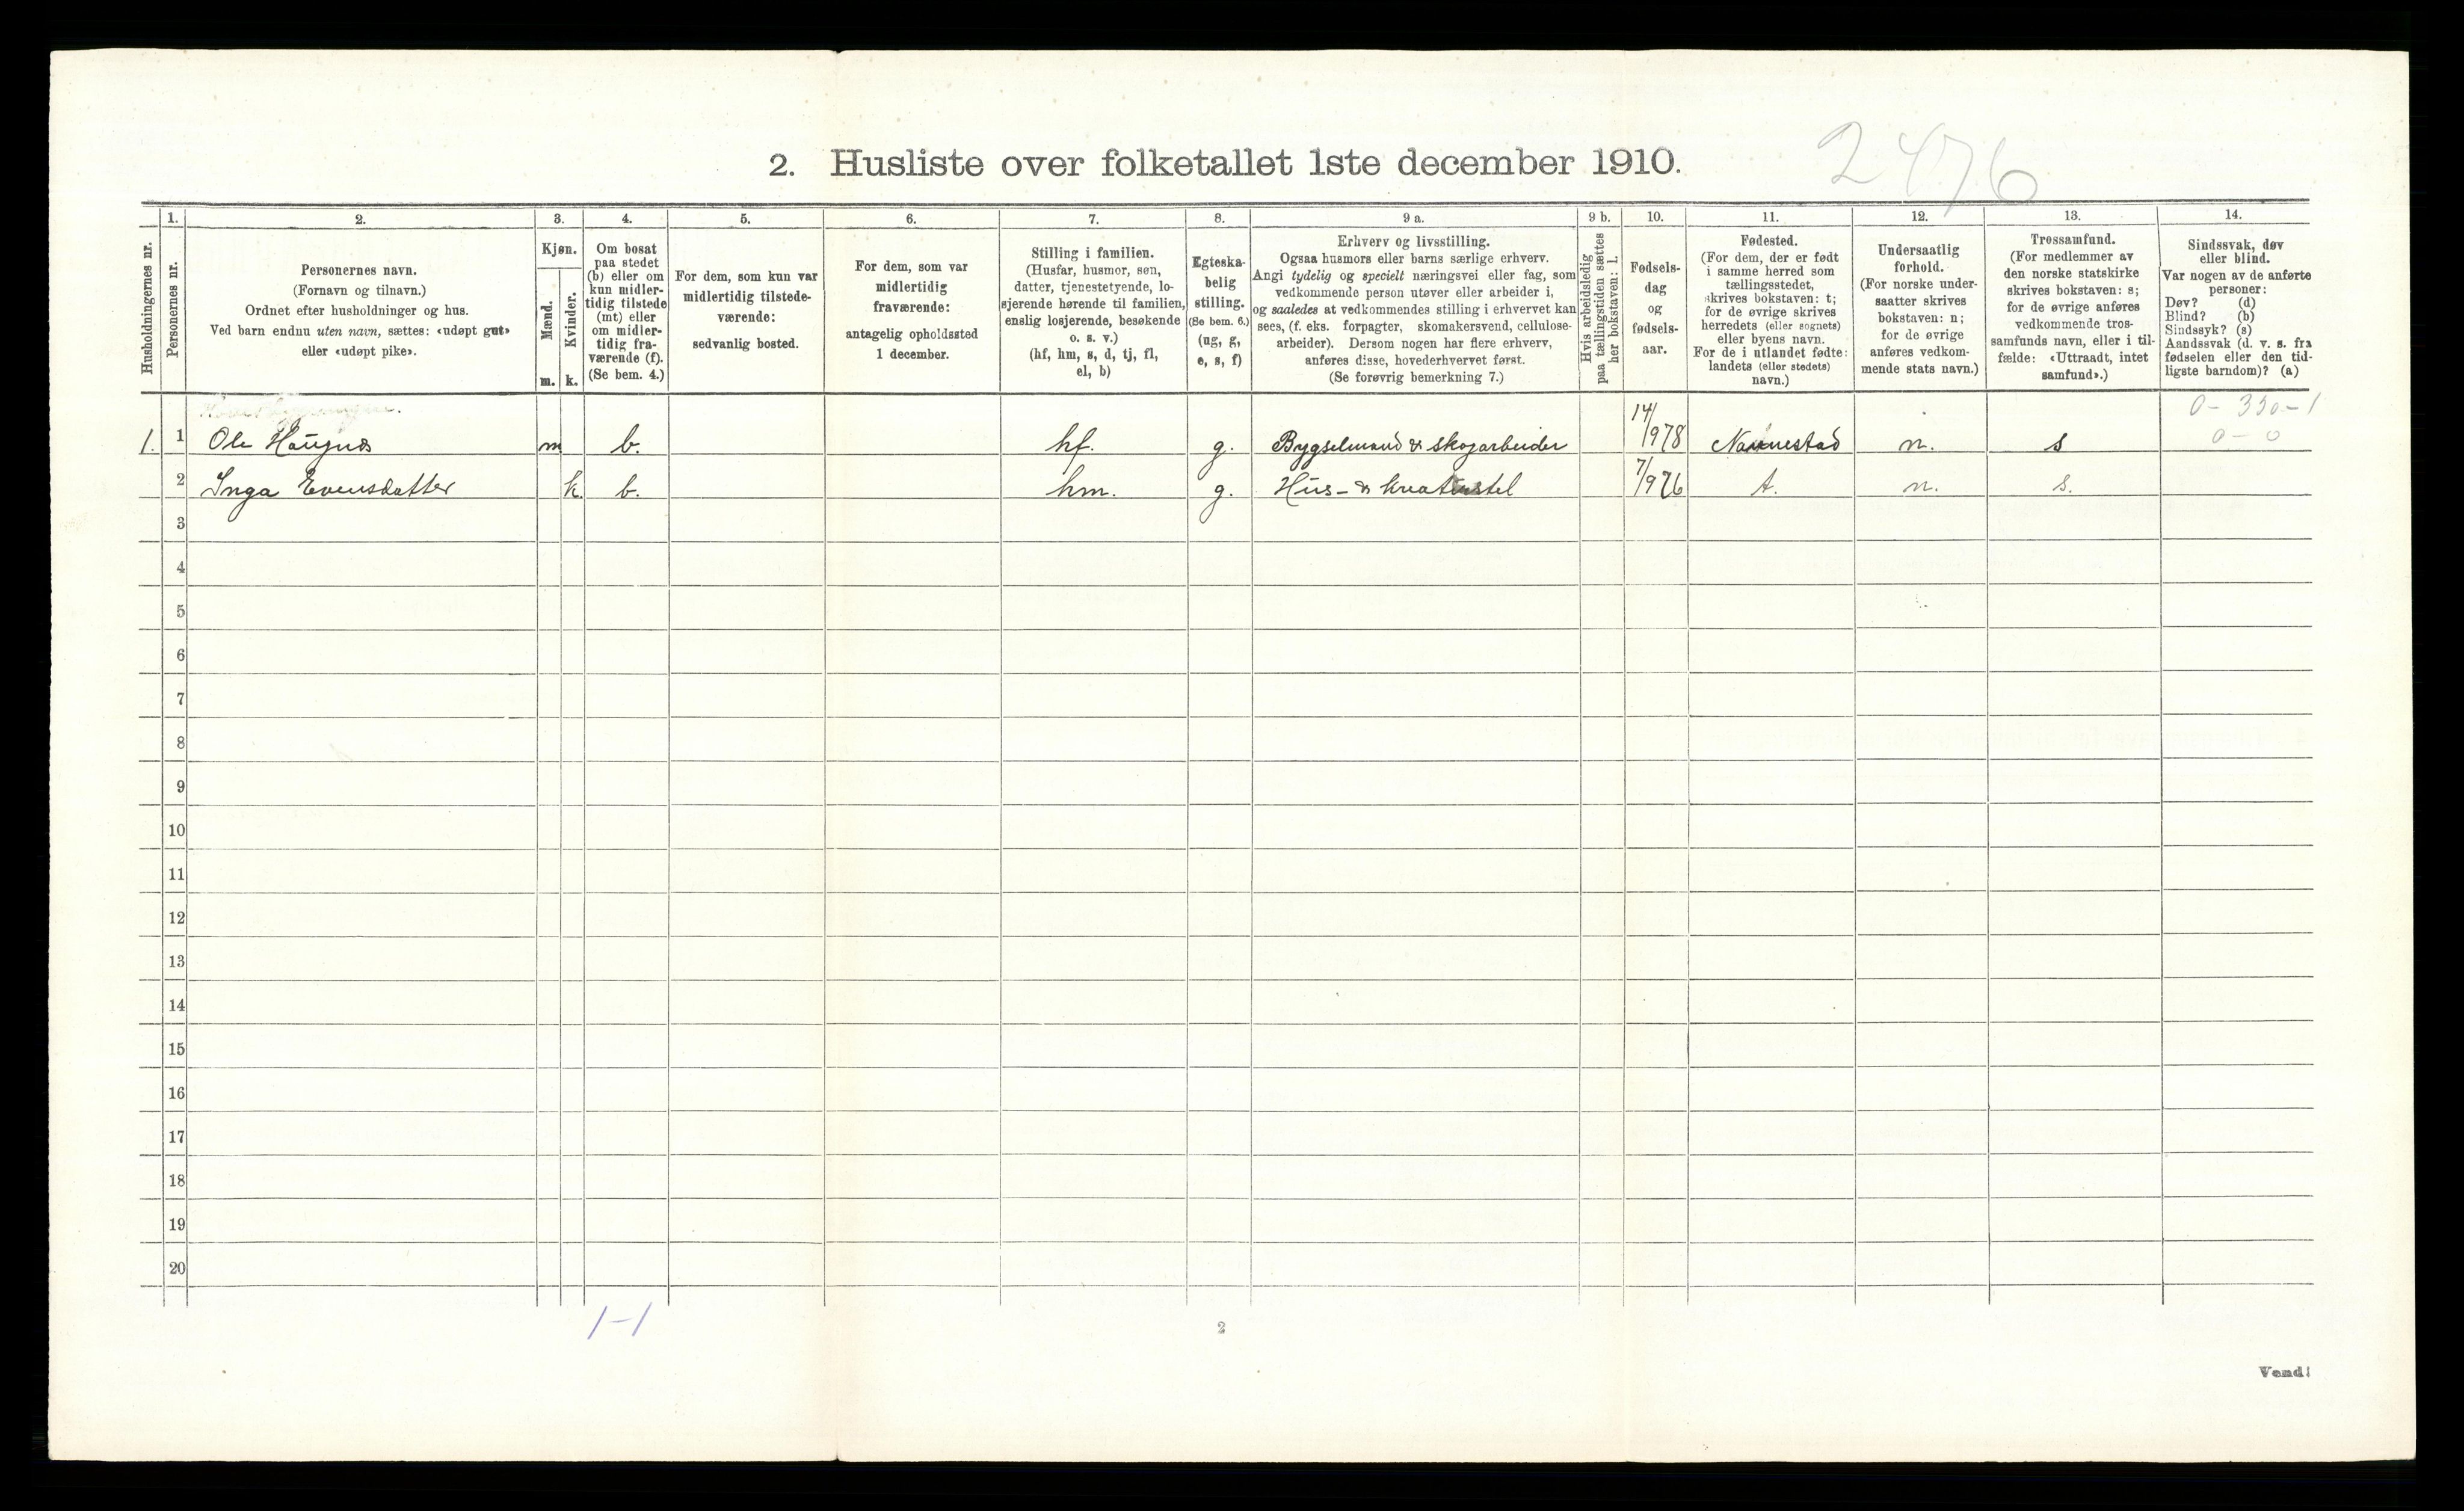 2476
2. Husliste over folketallet 1ste december 1910.
Husholdningernes nr.
1.
Personernes nr.
2.
Personernes navn.
(Fornavn og tilnavn.)
Ordnet efter husholdninger og hus.
Ved barn endnu uten navn, sættes: «udøpt gut»
eller «udøpt pike».
3.
Kjøn.
Mænd.
m.
Kvinder.
k.
4.
Om bosat
paa stedet
(b) eller om
kun midler-
tidig tilstede
(mt) eller
om midler-
tidig fra-
værende (f).
(Se bem. 4.)
5.
For dem, som kun var
midlertidig tilstede-
værende:
sedvanlig bosted.
6.
For dem, som var
midlertidig
fraværende:
antagelig opholdssted
1 december.
7.
Stilling i familien.
(Husfar, husmor, søn,
datter, tjenestetyende, lo-
sjerende hørende til familien,
enslig losjerende, besøkende
o. s. v.)
(hf, hm, s, d, tj, fl,
el, b)
8.
Egteska-
belig
stilling.
(Se bem. 6.)
(ug, g,
e, s, f)
9 a.
Erhverv og livsstilling.
Ogsaa husmors eller barns særlige erhverv.
Angi tydelig og specielt næringsvei eller fag, som
vedkommende person utøver eller arbeider i,
og saaledes at vedkommendes stilling i erhvervet kan
sees, (f. eks. forpagter, skomakersvend, cellulose-
arbeider). Dersom nogen har flere erhverv,
anføres disse, hovederhvervet først.
(Se forøvrig bemerkning 7.)
9 b.
Hvis arbeidsledig
paa tællingstiden sættes
her bokstaven: l.
10.
Fødsels-
dag
og
fødsels-
aar.
11.
Fødested.
(For dem, der er født
i samme herred som
tællingsstedet,
skrives bokstaven: t;
for de øvrige skrives
herredets (eller sognets)
eller byens navn.
For de i utlandet fødte:
landets (eller stedets)
navn.)
12.
Undersaatlig
forhold.
(For norske under-
saatter skrives
bokstaven: n;
for de øvrige
anføres vedkom-
mende stats navn.)
13.
Trossamfund.
(For medlemmer av
den norske statskirke
skrives bokstaven: s;
for de øvrige anføres
vedkommende tros-
samfunds navn, eller i til-
fælde: «Uttraadt, intet
samfund».)
14.
Sindssvak, døv
eller blind.
Var nogen av de anførte
personer:
Døv? (d)
Blind? (b)
Sindssyk? (s)
Aandssvak (d. v. s. fra
fødselen eller den tid-
ligste barndom)? (a)
0-330-1
0-0
1. 1 Ole Haugnes m b. hf. g. Bygselmand & skogarbeider 14/978 Nannestad n. s
2 Inga Evensdatter k. b. hm. g. Hus- & kreaturstel 7/976 t. n. s.
3
4
5
6
7
8
9
10
11
12
13
14
15
16
17
18
19
20
1-1
2
Vend!